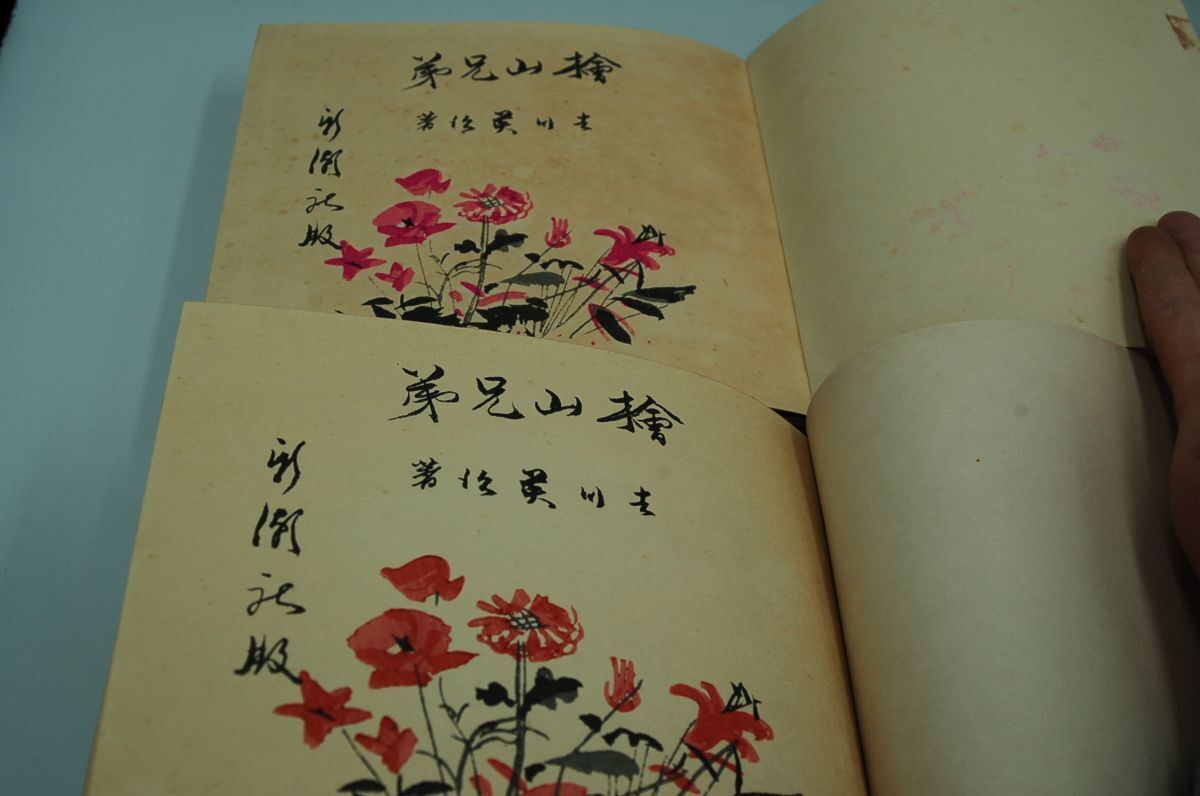 檜山兄弟
吉川英治著
新潮社版
檜山兄弟
吉川英治著
新潮社版